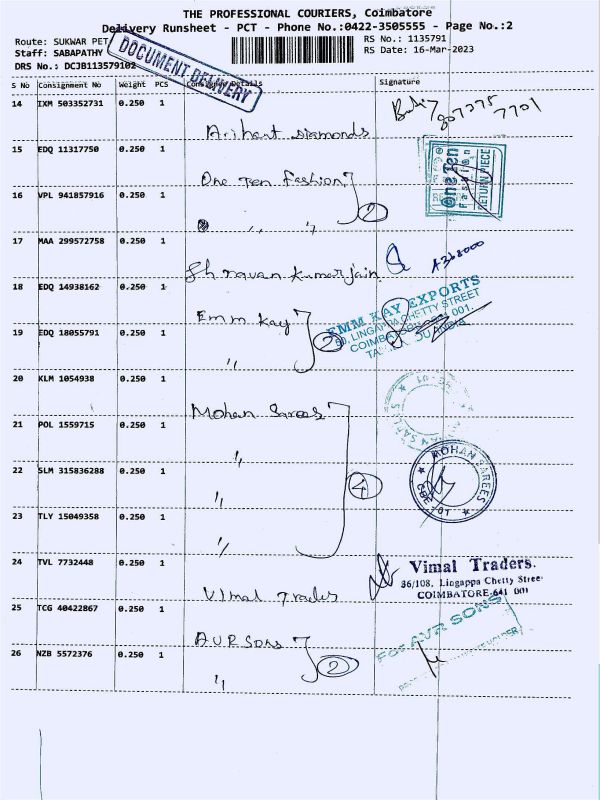 THE PROFESSIONAL COURIERS, Coimbatore
Delivery Runsheet - PCT - Phone No.:0422-3505555 - Page No.:2
Route: SUKWAR PET
RS No.: 1135791
Staff: SABAPATHY
RS Date: 16-Mar-2023
DRS No.: DCJB113579102
DOCUMENT DELIVERY
S No Consignment No Weight PCS Consignee Details Signature
14 IXM 503352731 0.250 1
Arihant Diamonds
807375
7701
15 EDQ 11317750 0.250 1
One Ten Fashion
One Ten
Fashion
RETURN PIECE
16 VPL 941857916 0.250 1
" "
2
17 MAA 299572758 0.250 1
Shravan Kumar jain
18 EDQ 14938162 1
0.250
Emm Kay
EMM KAY EXPORTS
LINGAPPA CHETTY STREET
19 EDQ 18055791 0.250 1
"
2
20 KLM 1054938 0.250 1
Mohan Sarees
21 POL 1559715 0.250 1
"
22 SLM 315836288 0.250 1
"
4
MOHAN SAREES
CBE-01
23 TLY 15049358 0.250 1
"
24 TVL 7732448 0.250 1
Vimal Trades
Vimal Traders.
86/108, Lingappa Chetty Street
COIMBATORE-641 001
25 TCG 40422867 0.250 1
AVR Sons
For AVR SONS
26 NZB 5572376 0.250 1
"
2